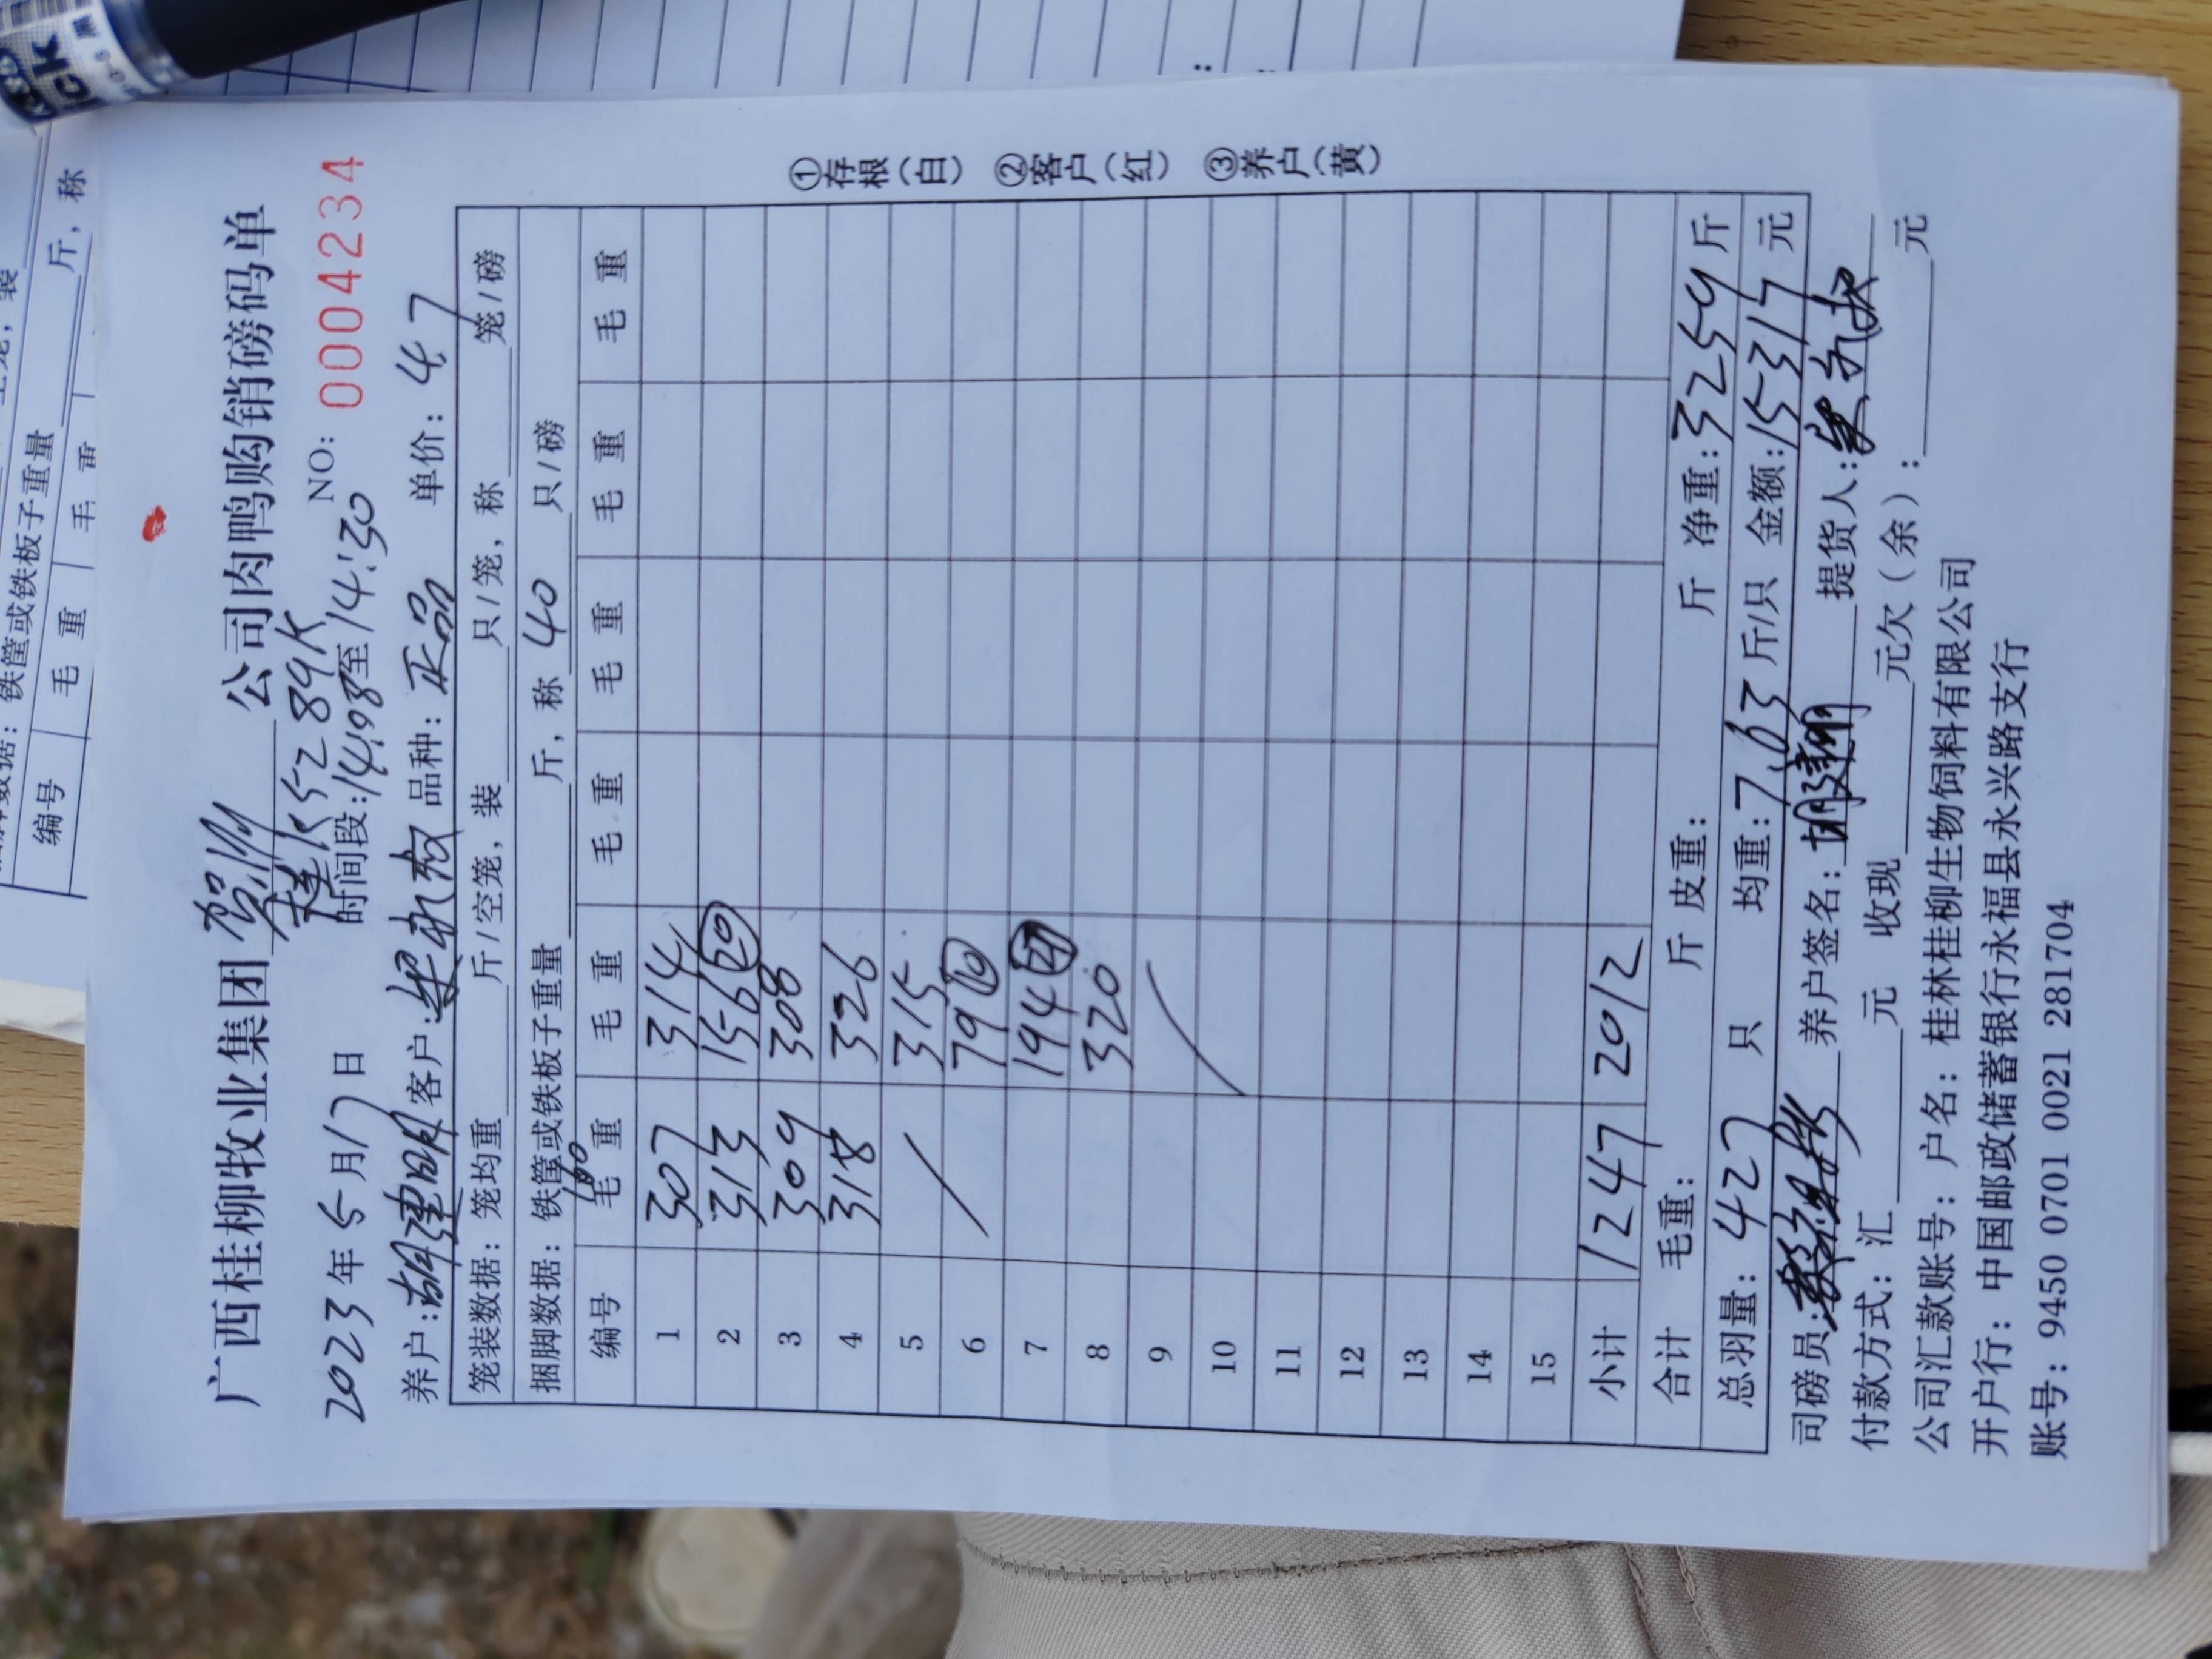 广西桂柳牧业集团 贺州 公司肉鸭购销磅码单
桂K5289K
2023年5月17日 时间段:14:08至14:30 NO: 0004234
养户:胡建明 客户: 品种:正品 单价:4.7
笼装数据:笼均重 斤/空笼,装 只/笼,称 笼/磅
捆脚数据:铁筐或铁板子重量 斤,称 40 只/磅
编号 毛重 毛重 毛重 毛重 毛重 毛重
1 307 314
2 313 156 20
3 309 308
4 318 326
5 315
6 79 10
7 194
8 320
9
10
11
12
13
14
15
小计 1247 2012
合计 毛重: 斤 皮重: 斤 净重:3259斤
总羽量:427 只 均重:7.63斤/只 金额:15317元
司磅员: 养户签名:胡建明 提货人:
付款方式:汇 元 收现 元欠(余): 元
公司汇款账号:户名:桂林桂柳生物饲料有限公司
开户行:中国邮政储蓄银行永福县永兴路支行
账号:9450 0701 0021 281704
①存根(白) ②客户(红) ③养户(黄)
铁筐或铁板子重量 斤,称
编号 毛重 毛重